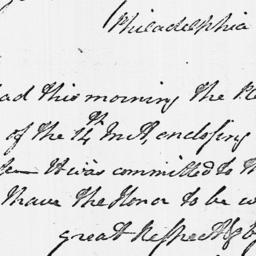 Philadelphia
had this morning the Ple
of the 14th Inst, enclosing
It was committed to th
I have the Honor to be w
great Respect &